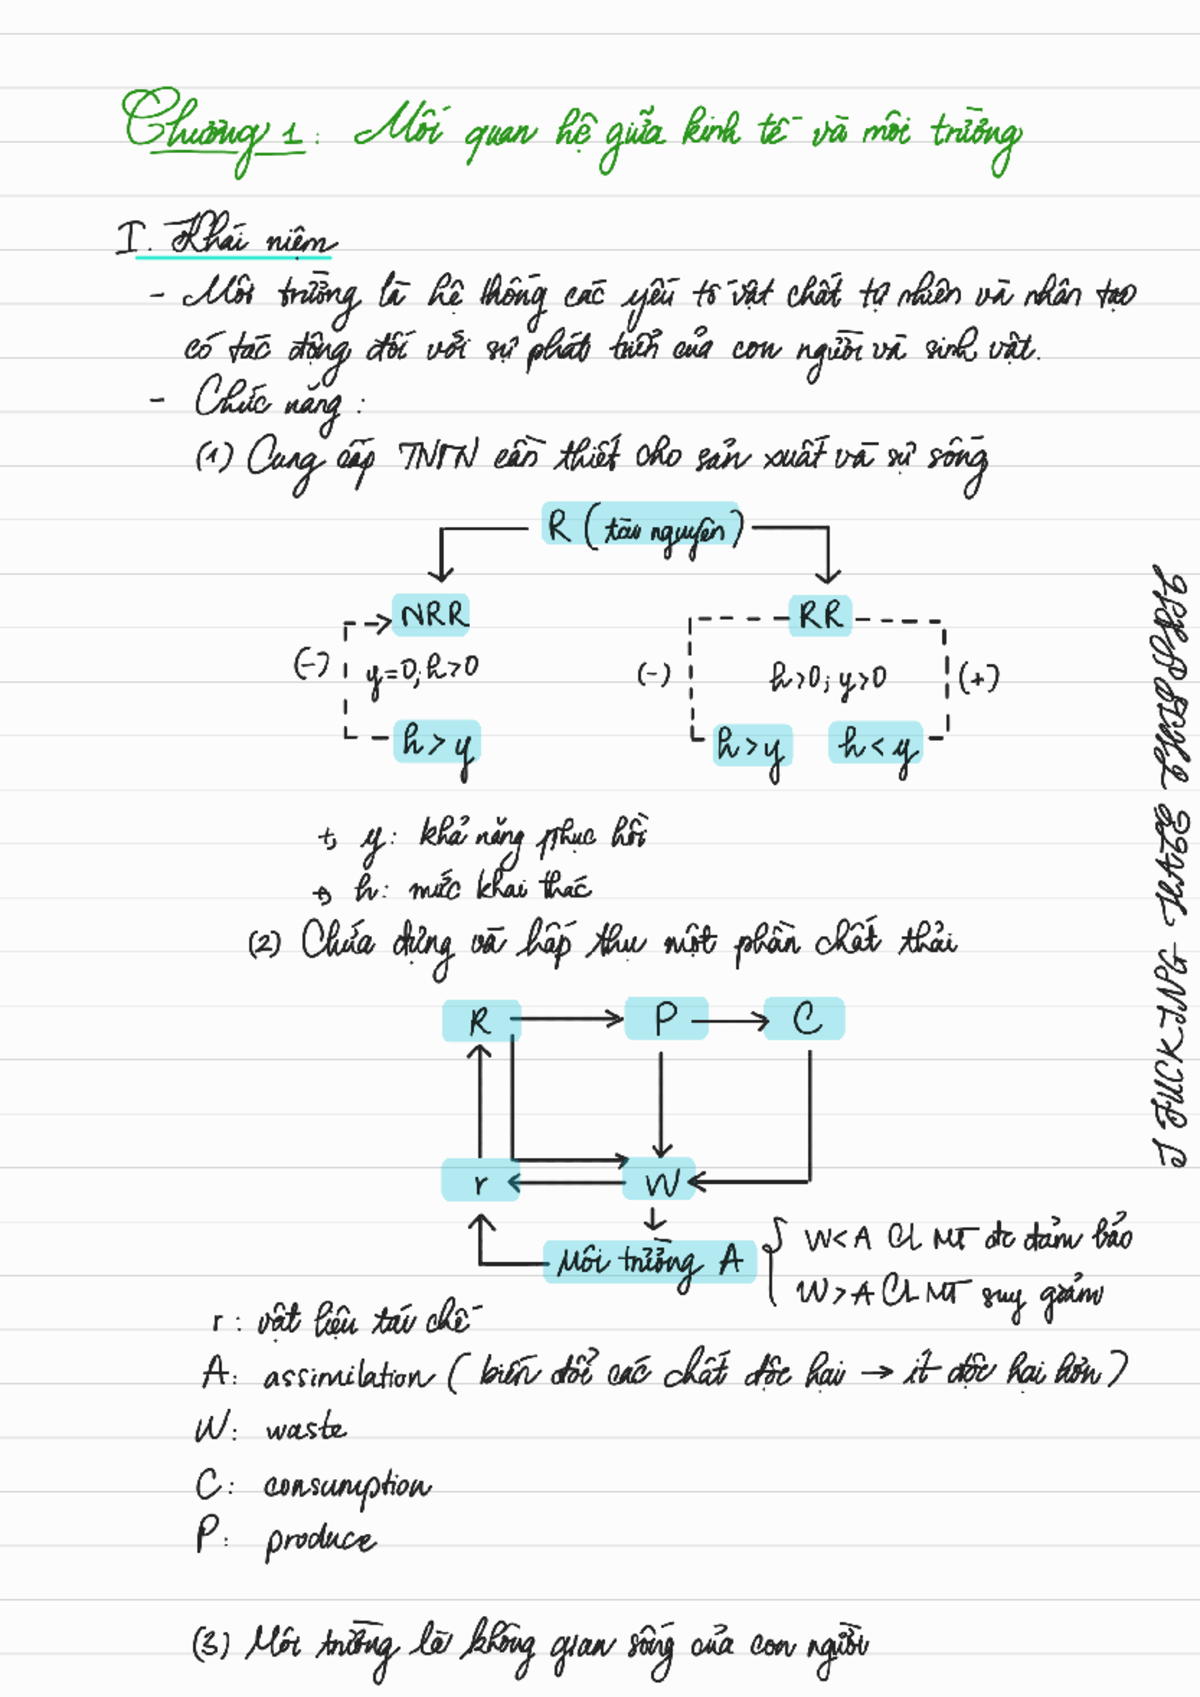 Chương 1: Mối quan hệ giữa kinh tế và môi trường
I. Khái niệm
- Môi trường là hệ thống các yếu tố vật chất tự nhiên và nhân tạo
có tác động đối với sự phát triển của con người và sinh vật.
- Chức năng:
(1) Cung cấp TNTN cần thiết cho sản xuất và sự sống
R (tài nguyên)
NRR RR
(-) y=0; h>0 (-) h>0; y>0 (+)
h>y h>y h<y
+, y: khả năng phục hồi
+, h: mức khai thác
(2) Chứa đựng và hấp thụ một phần chất thải
R P C
r W
Môi trường A { W<A CLMT đc đảm bảo
W>A CLMT suy giảm
r: vật liệu tái chế
A: assimilation (biến đổi các chất độc hại → ít độc hại hơn)
W: waste
C: consumption
P: produce
(3) Môi trường là không gian sống của con người
I FUCKING HATE